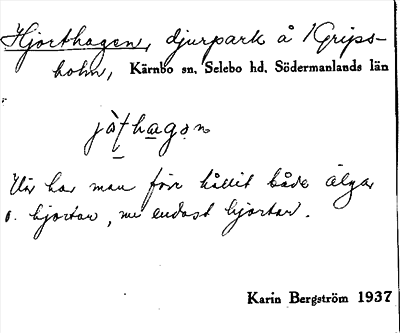 Hjorthagen, djurpark å Grips-
holm, Kärnbo sn, Selebo hd, Södermanlands län
jò̱ṭha̱gǝn
Här har man förr hållit både älgar
o. hjortar, nu endast hjortar.
Karin Bergström 1937